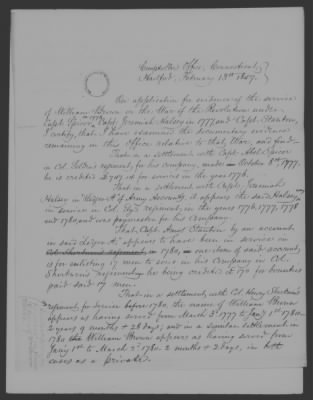 Comptroller's Office, Connecticut,
Hartford, February 13th 1847.
On application for evidence of the service
of William Brown in the War of the Revolution under
Capt. Spicer in 1776, Capt. Jeremiah Halsey in 1777 and Capt. Stanton,
I certify, that I have examined the documentary evidence
remaining in this Office relative to that War, and find:
That in a settlement with Capt. Abel Spicer
in Col. regiment, for his company, made October 8th 1777,
he is credited for services in the year 1776.
That in a settlement with Capt. Jeremiah
Halsey in Ledger A of Army Accounts, it appears the said Halsey was
in service in Col. Ely's regiment, in the years 1776, 1777, 1778
and 1780, and was paymaster for his Company.
That Capt. Stanton by an account
in said Ledger A appears to have been in service in
Col. Sherburne's regiment, in 1780, one item of said account,
is for enlisting 17 men to serve in his Company in Col.
Sherburne's regiment, he being credited for bounties
paid said 17 men.
That in a settlement, with Col. Henry Sherburne's
regiment, for service before 1780, the name of William Brown
appears as having served from March 3d 1777 to Jany 1st 1780.
2 years 9 months & 28 days; and in a similar settlement in
1780 the William Brown appears as having served from
Jany 1st to March 2d 1780. 2 months & 2 days, in both
cases as a private.